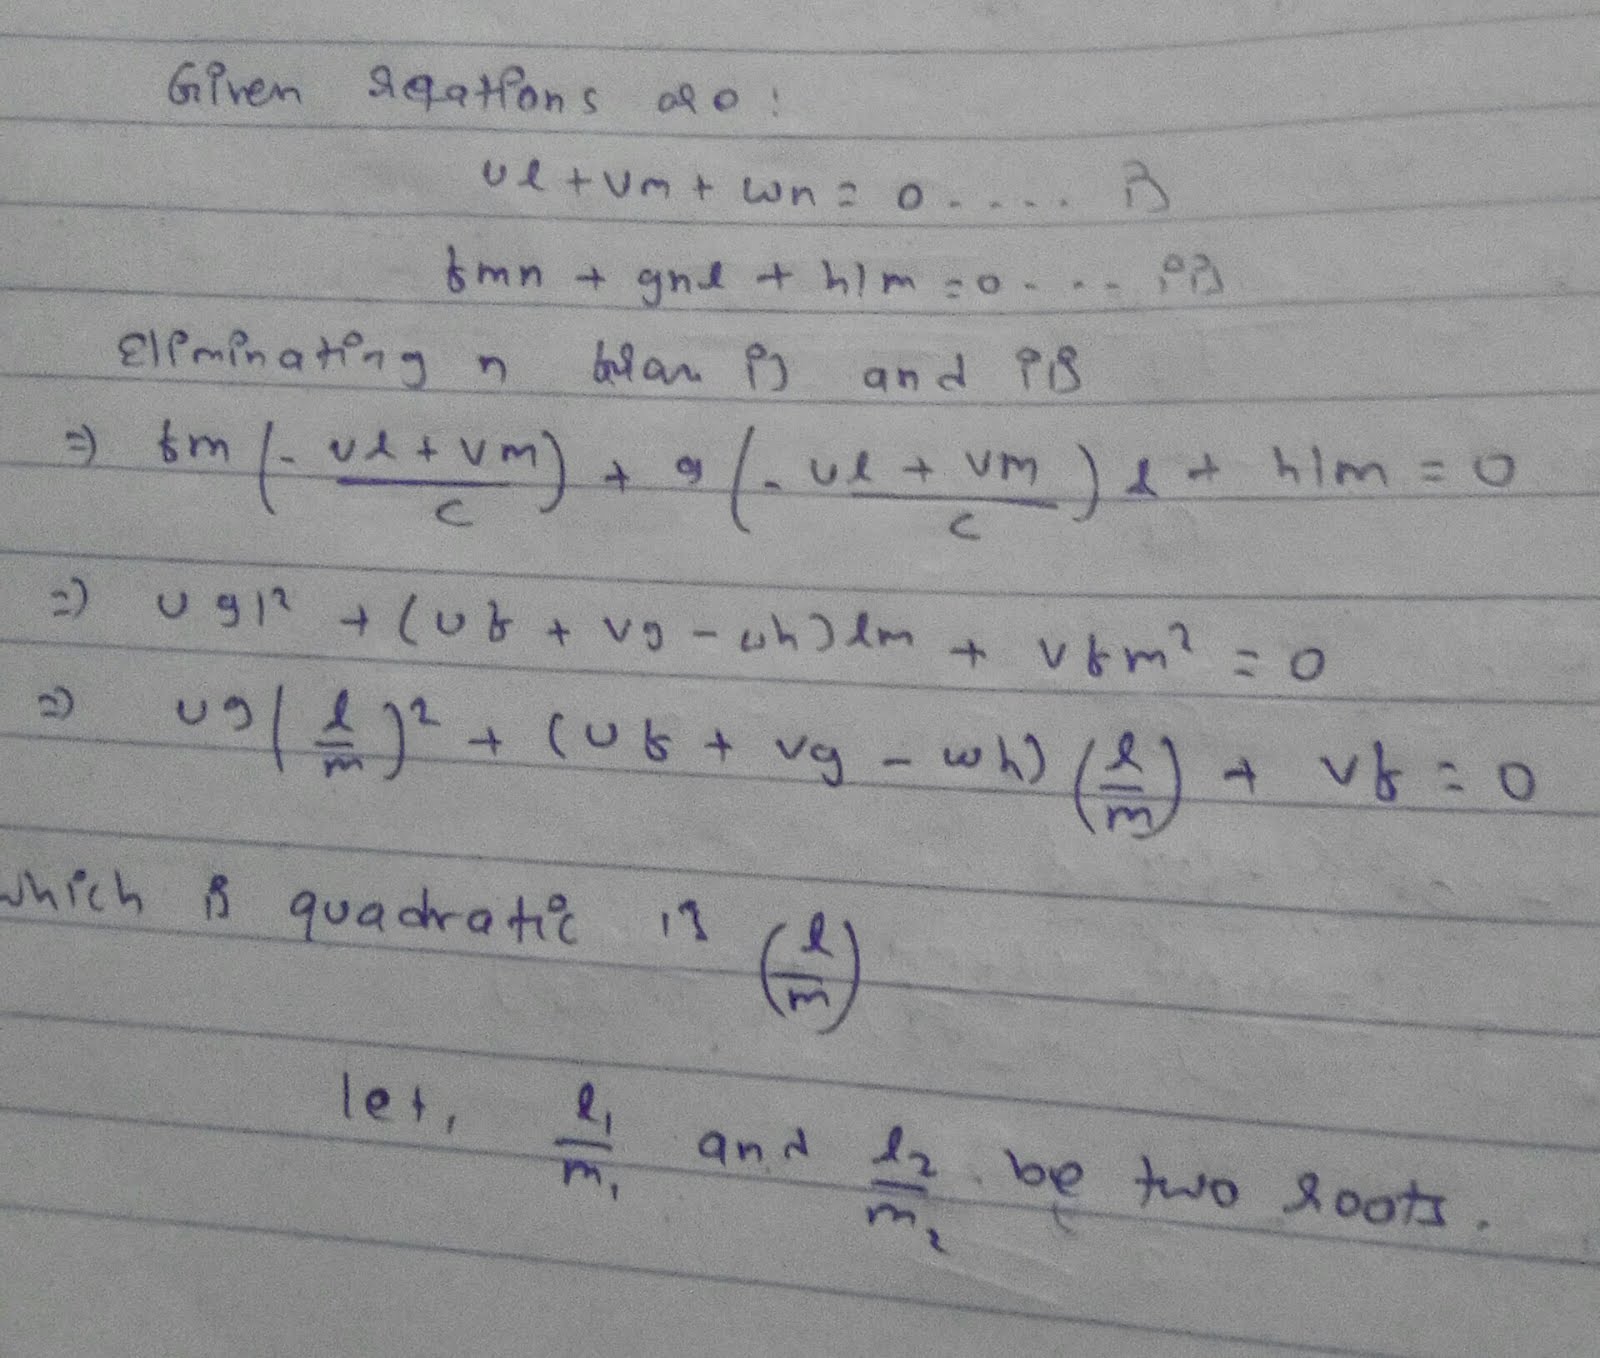 Given reqations are:
ul + vm + wn = 0 ..... i)
fmn + gnl + hlm = 0 .... ii)
Eliminating n from i) and ii)
=> fm (- ul + vm / c) + g (- ul + vm / c) l + hlm = 0
=> ugl² + (uf + vg - wh) lm + vfm² = 0
=> ug (l/m)² + (uf + vg - wh) (l/m) + vf = 0
which is quadratic is (l/m)
let, l₁/m₁ and l₂/m₂ be two roots.